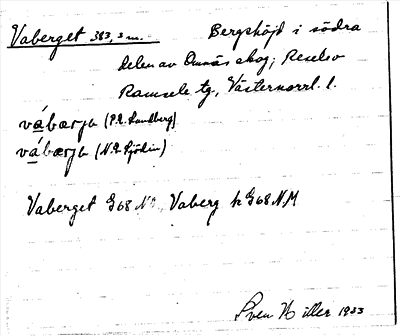 Vaberget 383,3 m. Bergshöjd i södra
delen av Omnäs skog; Resele
Ramsele tg, Västernorrl. l.
vábærja (P.E. Sandberg)
vábærja (N.E. Sjödin)
Vaberget G68 Vaberg h G68 NM
Sven Hiller 1933